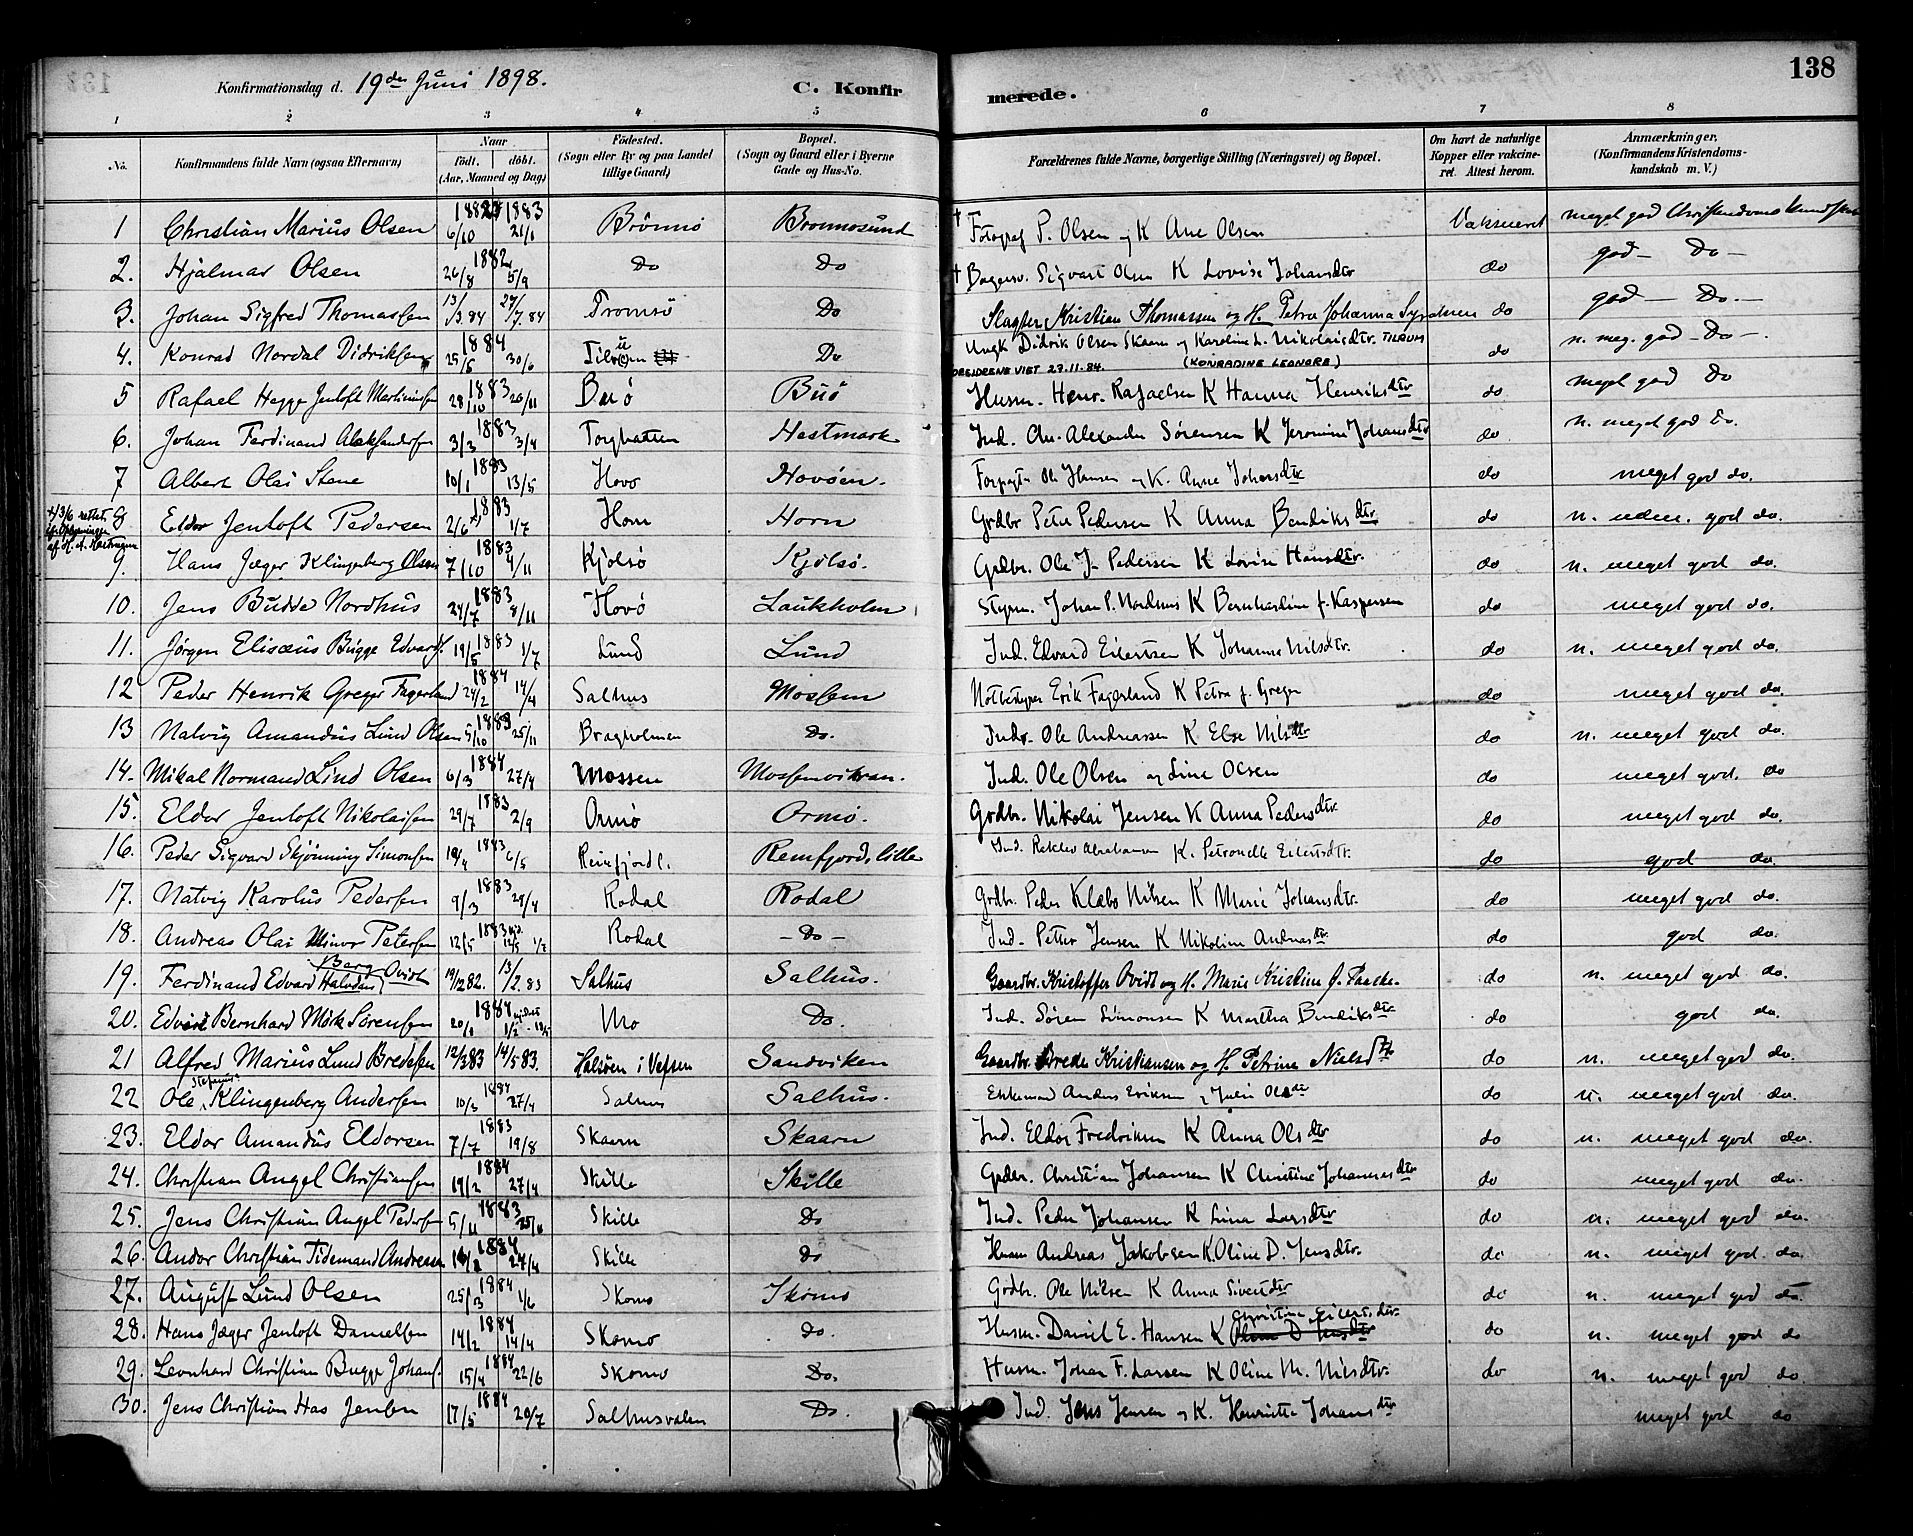 138
Konfirmationsdag d. 19de Juni 1898. C. Konfirmerede.
1 2 3 4 5 6 7 8
No. Konfirmandens fulde Navn (ogsaa Efternavn) Naar født. døbt. (Aar, Maaned og Dag) Fødested. (Sogn eller By og paa Landet tillige Gaard) Bopæl. (Sogn og Gaard eller i Byerne Gade og Hus-No. Forældrenes fulde Navne, borgerlige Stilling (Næringsvei) og Bopæl. Om havt de naturlige Kopper eller vakcineret. Attest herom. Anmærkninger, (Konfirmandens Kristendomskundskab m. V.)
1 Christian Marius Olsen 6/10 1882 1883 21/1 Brønnø Brønnøsund † Fotograf P. Olsen og K Ane Olsen Vaksineret meget god Christendoms Kundskab
2. Hjalmar Olsen 26/8 1882 5/9 Do Do † Sigvart Olsen K Lovise Johansdtr do god - Do -
3. Johan Sigfred Thomassen 13/3 84 27/7 84 Tromsø Do Slagter Kristian Thomassen og H. Petra Johanna do god - Do. -
4. Konrad Nordal Didriksen 25/5 1884 30/6 Do Ungk Didrik Olsen Skaan og Karoline L. Nikolaisdtr TILRUM do n. meg. god - Do -
FORELDRENE VIET 27.11.84. (KONRADINE LEONARE)
5 Rafael Hegge Jentoft Martinussen 28/10 1883 20/11 Buø Buø Husm. Henr. Rafaelsen K Hanna Henriksdtr do meget god Do
6. Johan Ferdinand Aleksandersen 3/3 1883 3/4 Torghatten Hestmark Ind. Alexander Sørensen K Jeronime Johansdtr do n. meget god Do.
7 Albert Olai Stene 10/1 1883 13/5 Hovø Hovøen. Ole Hansen og K. Anne Johansdtr do meget god do.
8 Eldor Jentoft Pedersen 2/6 1883 1/7 Horn Horn Grdbr Peter Pedersen K Anna Bendiksdtr do n. uden. god do.
9. Hans Jæger Klingenberg Olsen 7/10 1883 4/11 Kjølsø Kjølsø. Grdbr. Ole J. Pedersen K Lovise Hansdtr. do n. meget god do.
10. Jens Budde Nordhus 24/7 1883 8/11 Hovø Laukholm Styrm. Johan P. Nordhus K Bernhardine f. Kaspersen do meget god do.
11. Jørgen Elisæus Bugge Edvards. 19/5 1883 1/7 Lund Lund Ind. Edvard Eilertsen K Johanna Nilsdtr. do n. meget god do.
12 Peder Henrik Greger Fagerland 24/2 1884 14/4 Salhus Mossem Erik Fagerland K Petra f. Greger do meget god do.
13 Natvig Amandus Lund Olsen 5/10 1883 25/11 Bragholmen Do. Indr. Ole Andreassen K Else Nilsdtr do n. meget god do.
14. Mikal Normand Lind Olsen 6/3 1884 27/4 Mossem Mossemvikran. Ind. Ole Olsen og Line Olsen do meget god. do
15. Eldor Jentoft Nikolaisen 29/7 1883 2/9 Ormø Ormø. Grdbr. Nikolai Jensen K Anna Pedersdtr. do meget god do.
16. Peder Sigvard Skjønning Simonsen 19/4 1883 6/5 Reinfjord l. Remfjord, lille Ind. Abrahamsen K. Petronelle Eilertsdtr. do god do.
17. Natvig Karolus Pedersen 9/3 1883 29/4 Rodal Rodal Grdbr. Peder Klæbo Nilsen K Marie Johansdtr. do meget god do.
18. Andreas Olai Minor Petersen 12/5 1883 Rodal - Do - Ind. Petter Jensen K Nikoline Andreasdtr do god do.
19. Ferdinand Edvard Halvdan Berg Qvidt 19/12 82. 13/2 83 Salhus Salhus. Gaardbr. Kristoffer Qvidt og H. Marie Kristine f. Paaske. do n. meget god do.
20. Edvard Bernhard Mørk Sørensen 20/1 1884 Mo Do. Ind. Søren Simonsen K Martha Bendiksdtr do god do.
21 Alfred Marius Lund Bredesen 12/3 83 14/5 83. Halsøen i Vefsen Sandviken Gaardbr. Brede Kristiansen og H. Petrine Nielsdtr do n. meget god do.
22 Ole Klingenberg Andersen 10/3 1884 27/4 Salhus Salhus. Enkemand Anders Eriksen og Julie Olsdtr do n. meget god do.
23. Eldor Amandus Eldorsen 7/7 1883 19/8 Skaarn Skaarn Ind. Eldor Fredriksen K Anna Olsdtr do n. meget god do.
24. Christian Angel Christiansen 19/2 1884 27/4 Skille Skille Grdbr. Christian Johansen K Christine Johannesdtr do meget god do.
25. Jens Christian Angel Pedersen 5/11 1883 25/11 Skille Do Ind. Peder Johansen K Lina Larsdtr do n. meget god do.
26. Andor Christian Tidemand Andreasen 1884 27/4 Skille Do Husm Andreas Jakobsen K. Oline D. Jensdtr. do n. meget god. do.
27. August Lund Olsen 25/3 1884 1/6 Skomo Skomo Grdbr. Ole Nilsen K Anna Sivertdtr do n. meget god do.
28. Hans Jæger Jentoft Danielsen 14/2 1884 14/4 Skomo do. Husm. Daniel E. Hansen K Christine Eilertsdtr. do n. meget god do
29. Leonhard Christian Bugge Johans. 15/4 1884 22/6 Skomo Do. Husm. Johan F. Larsen K Oline M. Nilsdtr. do n. meget god do.
30. Jens Christian Has Jensen 17/5 1884 20/7 Salhusvalen Do. Ind. Jens Jensen og K. Henritte Johansdtr meget god do